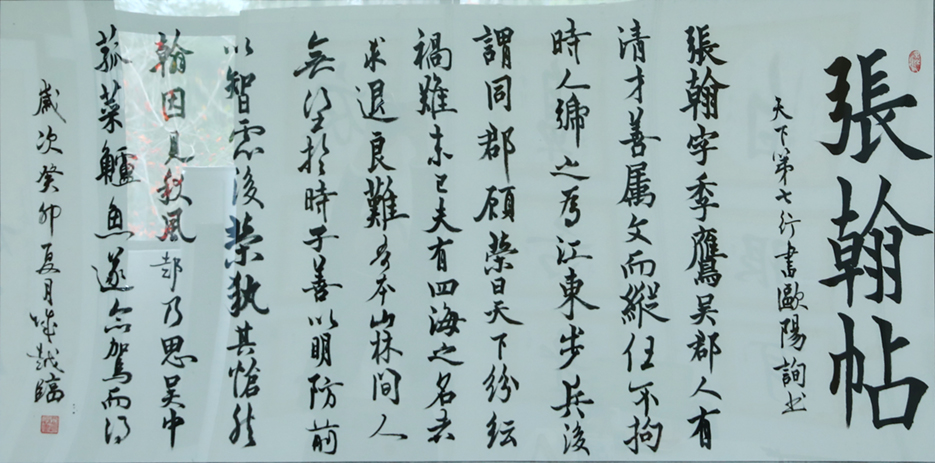 張翰帖
天下第七行書歐陽詢书
張翰字季鷹吴郡人有
清才善属文而縱任不拘
時人号之为江東步兵後
謂同郡顾榮曰天下纷纭
禍難未已夫有四海之名者
求退良難吾本山林間人
無望於時子善以明防前
以智慮後榮执其怆然
翰因見秋風起乃思吴中
菰菜鱸魚遂命驾而归
歲次癸卯夏月 越臨